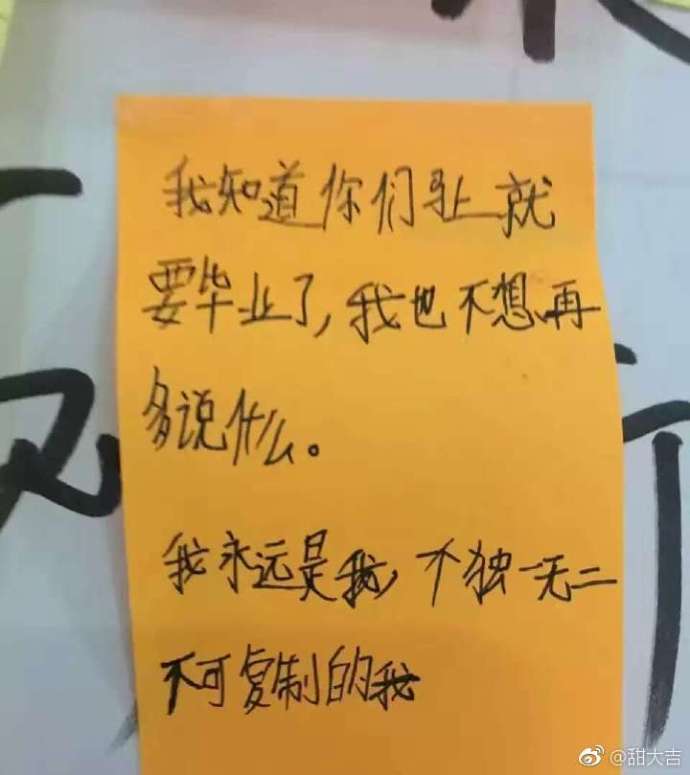 我知道你们马上就
要毕业了,我也不想再
多说什么。
我永远是我,个独一无二
不可复制的我
@甜大吉